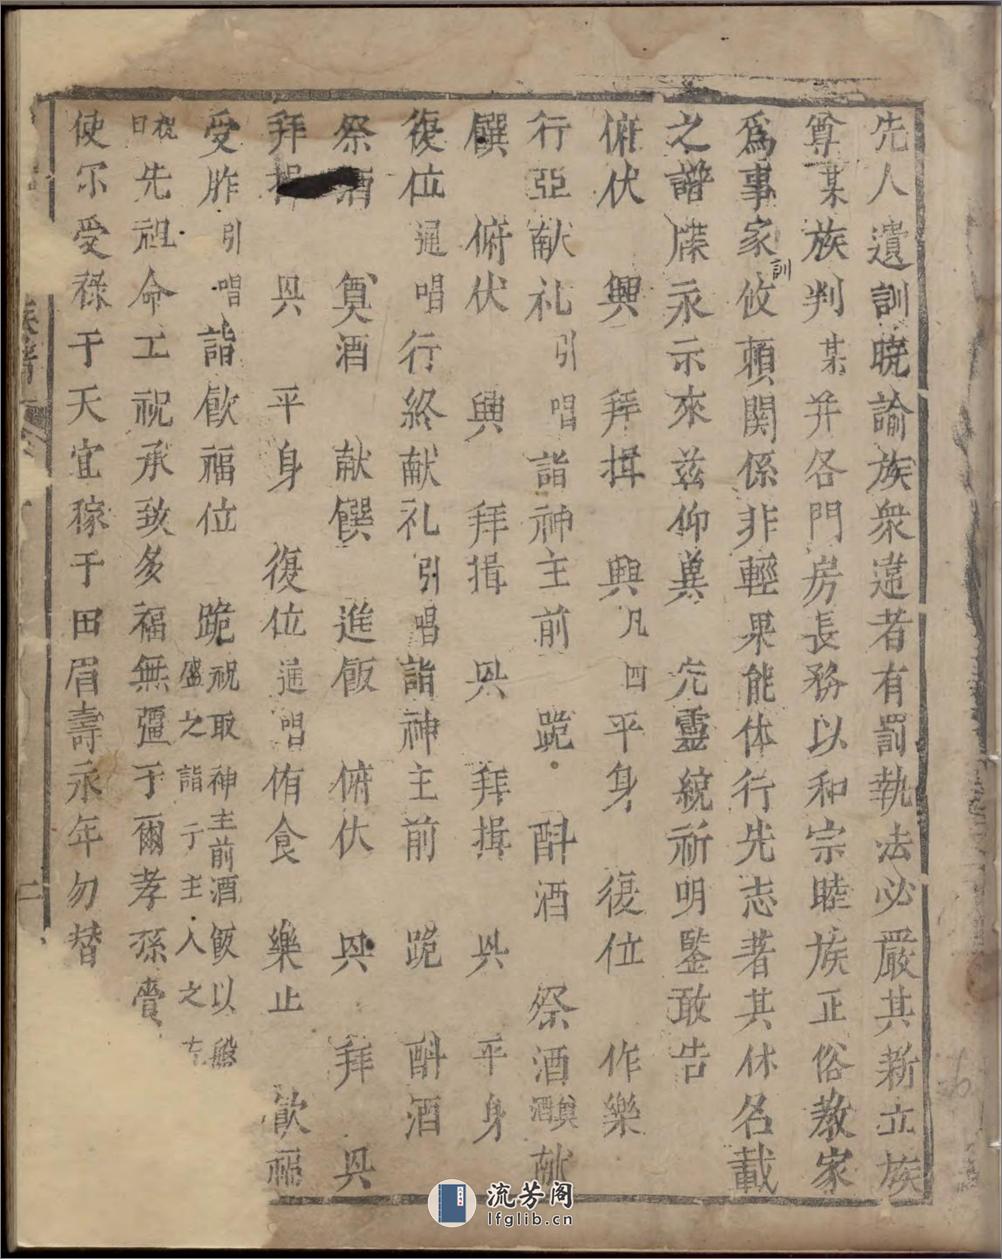 先人遺訓曉諭族衆違者有罰執法必嚴其新立族
尊某族判某并各門房長務以和宗睦族正俗教家
爲事家訓攸頼関係非輕果能体行先志著其休名載
之譜牒永示來兹仰兾 先靈統祈明鑒敢告
俯伏 興 拜揖 興凡四平身 復位 作樂
行亞献礼引唱詣神主前 跪 酙酒 祭酒奠酒献
饌 俯伏 興 拜揖 興 拜揖 興 平身
復位通唱行終献礼引唱詣神主前 跪 酙酒
祭酒 奠酒 献饌 進飯 俯伏 興 拜 興
拜揖 興 平身 復位通唱侑食 樂止 飲福
受胙引唱詣飮福位 跪祝取神主前酒飯以盤
盛之詣于主人之左
祝曰先祖命工祝承致多福無疆于爾孝孫賚
使尔受祿于天宜稼于田眉壽永年勿替
族譜
二
流芳阁
lfglib.cn